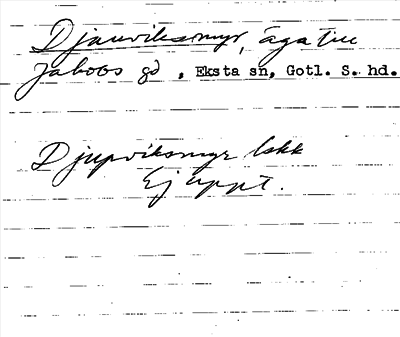 Djauviksmyr, äga till
Jakobs gd, Eksta sn, Gotl. S. hd.
Djupviksmyr lskk
Ej uppt.